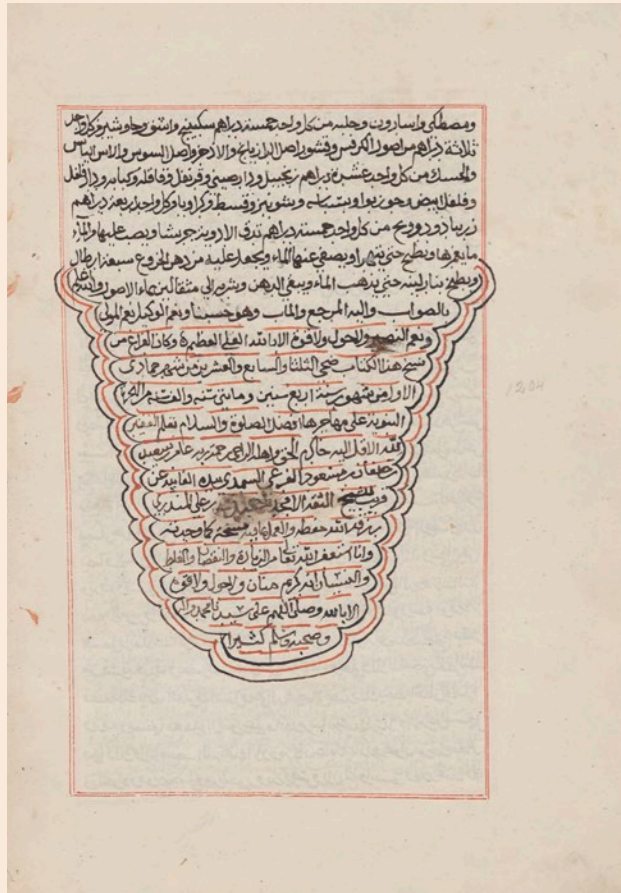 ومصطكى واسارون وجلسه من كل واحد خمسة دراهم سكبينج واشق وجاوشير من كل واحد
ثلاثة دراهم من اصول الكرفس وقشور اصل الرازيانج والاذخر واصل السوس والاس اليابس
والحسك من كل واحد عشرين دراهم زنجبيل ودارصيني وقرنفل وقاقله وكبابه ودارفلفل
وفلفل ابيض وجوزبوا وبسباسه وشونيز وقسط وكراويا من كل واحد اربعة دراهم
زرنباد ودرونج من كل واحد خمسة دراهم تدق الادوية جريشا ويصب عليها من الماء
ما يغمرها ويطبخ حتى يتهرا ويصفى عنها الماء ويجعل عليه من دهن الخروع سبعة ارطال
ويطبخ بنار لينة حتى يذهب الماء ويبقى الدهن ويشرب الى مثقالين بماء الاصول والله اعلم
بالصواب واليه المرجع والماب وهو حسبنا ونعم الوكيل نعم المولى
ونعم النصير ولاحول ولاقوة الا بالله العلي العظيم وكان الفراغ من
نسخ هذا الكتاب ضحى الثلثا والسابع والعشرين من شهر جمادى
الاولى من شهور سنة اربع سنين ومائتي سنه والف سنه من الهجرة
النبوية على مهاجرها افضل الصلوة والسلام بقلم الفقير
لله الاقل اليه حاكم الراجي رحمة ربه عامر بن
بن مسعود
نسخ الثقة الامجد بن علي المنذري
الله حفظه والعمل بما فيه نسخته كما وجدته
وانا استغفر الله تعالى من الزيادة والنقصان والغلط
والنسيان انه كريم منان ولاحول ولاقوة
الا بالله وصلى اللهم على سيدنا محمد واله
وصحبه وسلم كثيرا
1204